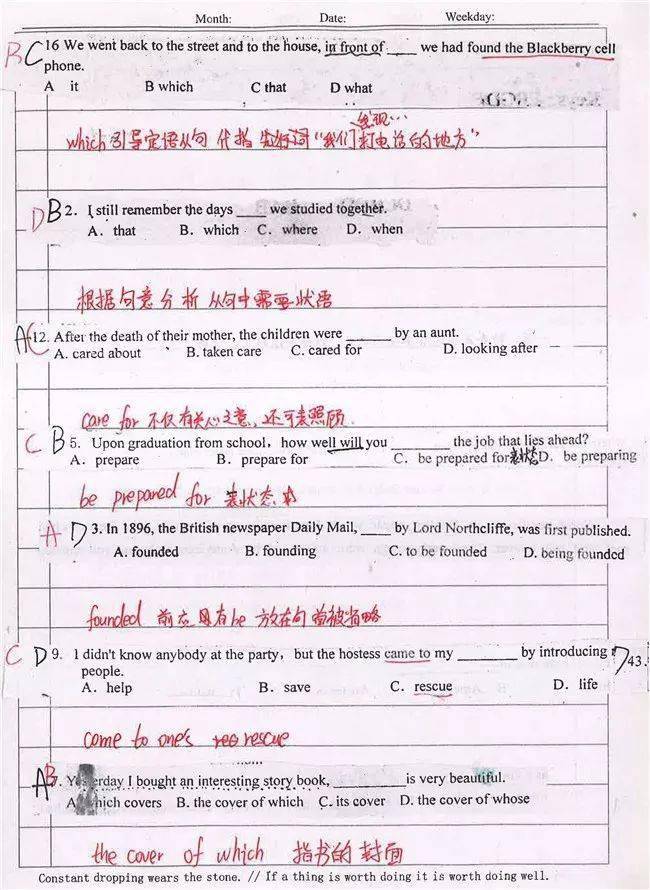 Month: Date: Weekday:
B C 16 We went back to the street and to the house, in front of ____ we had found the Blackberry cell
phone.
A it B which C that D what
发现…
which 引导定语从句 代指 先行词“我们打电话的地方”
D B 2. I still remember the days ____ we studied together.
A. that B. which C. where D. when
根据句意分析 从句中需要状语
A C 12. After the death of their mother, the children were ______ by an aunt.
A. cared about B. taken care C. cared for D. looking after
care for 不仅有关心之意, 还可表照顾.
C B 5. Upon graduation from school, how well will you ________ the job that lies ahead?
A. prepare B. prepare for C. be prepared for 表状态 D. be preparing
be prepared for 表状态
A D 3. In 1896, the British newspaper Daily Mail, ____ by Lord Northcliffe, was first published.
A. founded B. founding C. to be founded D. being founded
founded 前应具有be 放在句首被省略
C D 9. I didn't know anybody at the party, but the hostess came to my ________ by introducing
43.
people.
A. help B. save C. rescue D. life
come to one's rescue
A B 7. Yesterday I bought an interesting story book, _________ is very beautiful.
A which covers B. the cover of which C. its cover D. the cover of whose
the cover of which 指书的封面
Constant dropping wears the stone. // If a thing is worth doing it is worth doing well.